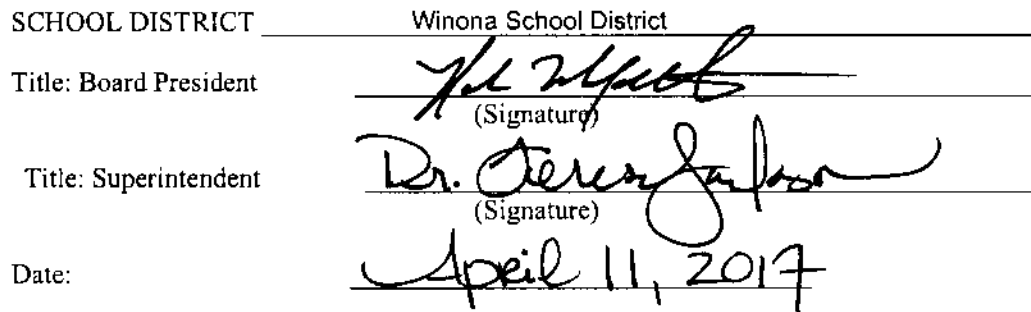 SCHOOL DISTRICT Winona School District
Title: Board President
(Signature)
Title: Superintendent Dr. Teresa Jackson
(Signature)
Date: April 11, 2017